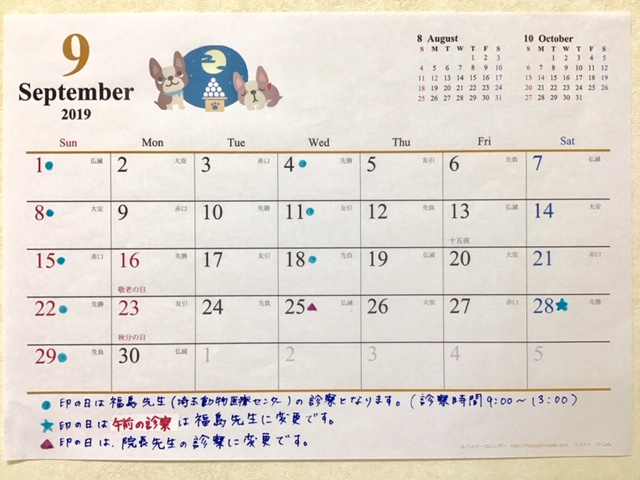 9
September
2019
8 August
S M T W T F S
1 2 3
4 5 6 7 8 9 10
11 12 13 14 15 16 17
18 19 20 21 22 23 24
25 26 27 28 29 30 31
10 October
S M T W T F S
1 2 3 4 5
6 7 8 9 10 11 12
13 14 15 16 17 18 19
20 21 22 23 24 25 26
27 28 29 30 31
Sun Mon Tue Wed Thu Fri Sat
1 仏滅 2 大安 3 赤口 4 先勝 5 友引 6 先負 7 仏滅
8 大安 9 赤口 10 先勝 11 友引 12 先負 13 仏滅 14 大安
十五夜
15 赤口 16 先勝 17 友引 18 先負 19 仏滅 20 大安 21 赤口
敬老の日
22 先勝 23 友引 24 先負 25 仏滅 26 大安 27 赤口 28 先勝
秋分の日
29 先負 30 仏滅 1 2 3 4 5
印の日は福島先生(埼玉動物医療センター)の診察となります。(診察時間9:00~13:00)
印の日は午前の診察は福島先生に変更です。
印の日は、院長先生の診察に変更です。